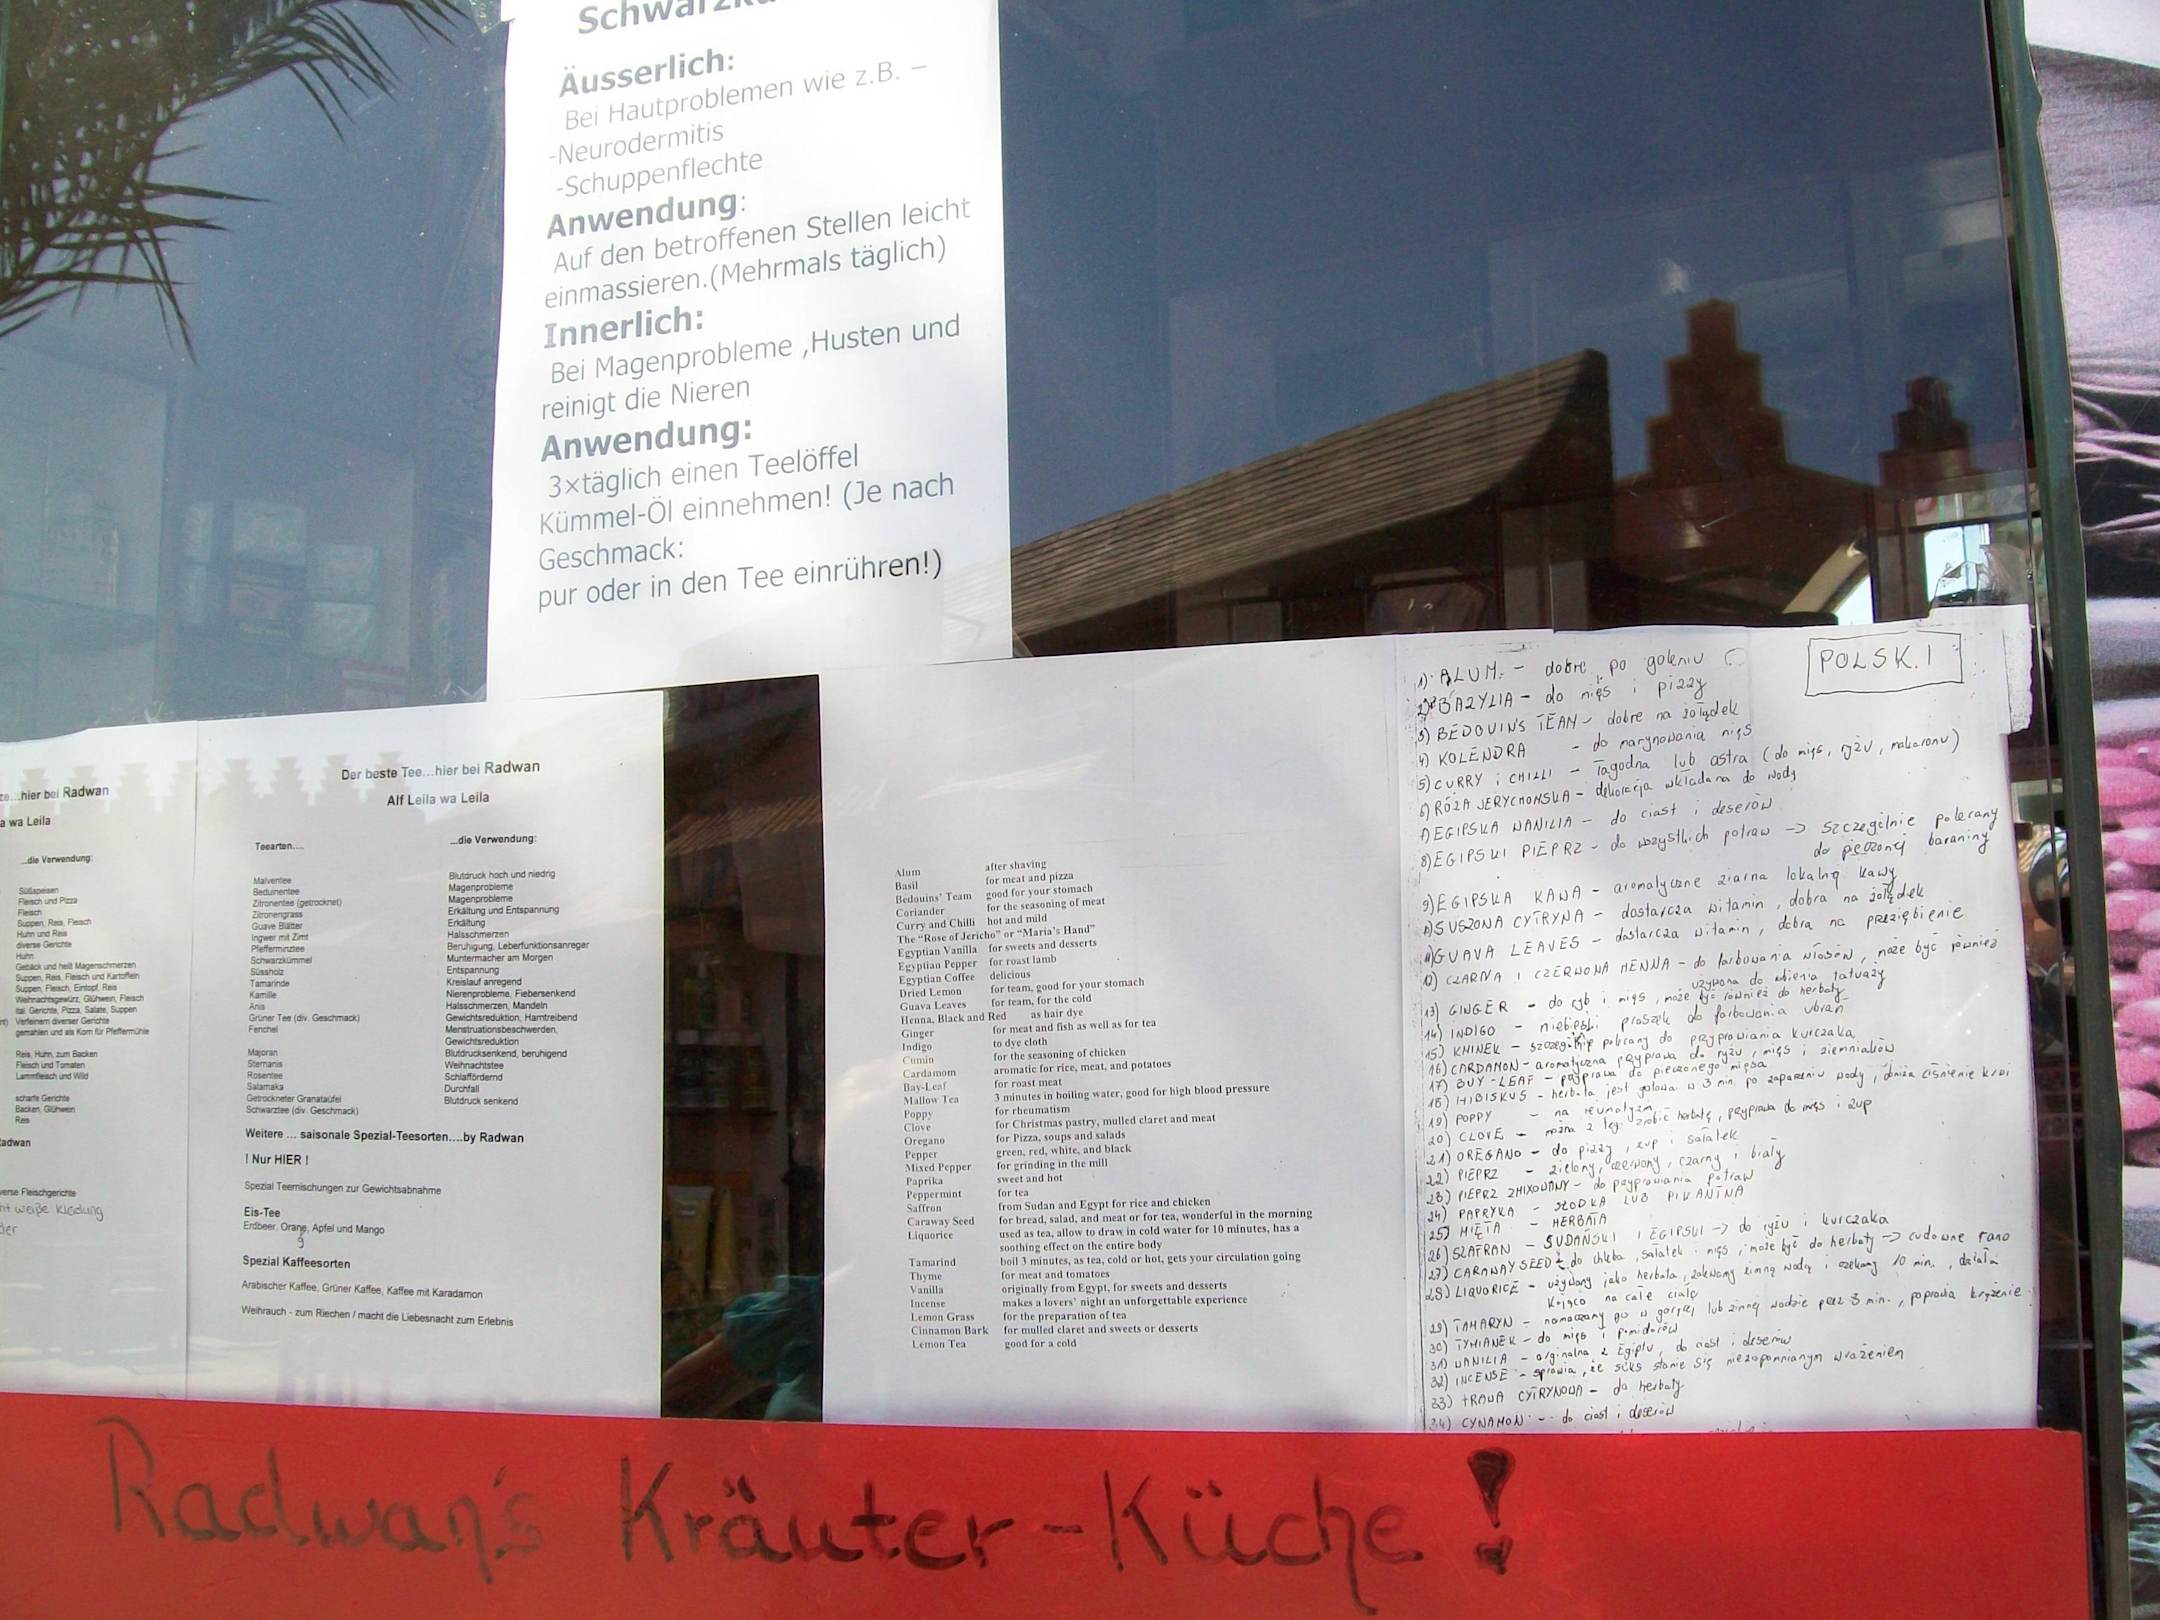 Äusserlich:
Bei Hautproblemen wie z.B. –
-Neurodermitis
-Schuppenflechte
Anwendung:
Auf den betroffenen Stellen leicht
einmassieren.(Mehrmals täglich)
Innerlich:
Bei Magenprobleme ,Husten und
reinigt die Nieren
Anwendung:
3×täglich einen Teelöffel
Kümmel-Öl einnehmen! (Je nach
Geschmack:
pur oder in den Tee einrühren!)
...hier bei Radwan
wa Leila
...die Verwendung:
Süßspeisen
Fleisch und Pizza
Fleisch
Suppen, Reis, Fleisch
Huhn und Reis
diverse Gerichte
Huhn
Gebäck und heilt Magenschmerzen
Suppen, Reis, Fleisch und Kartoffeln
Suppen, Fleisch, Eintopf, Reis
Weihnachtsgewürz, Glühwein, Fleisch
ital. Gerichte, Pizza, Salate, Suppen
Verfeinern diverser Gerichte
gemahlen und als Korn für Pfeffermühle
Reis, Huhn, zum Backen
Fleisch und Tomaten
Lammfleisch und Wild
scharfe Gerichte
Backen, Glühwein
Reis
Fleischgerichte
weiße Kleidung
Der beste Tee...hier bei Radwan
Alf Leila wa Leila
Teearten.... ...die Verwendung:
Malventee Blutdruck hoch und niedrig
Beduinentee Magenprobleme
Zitronentee (getrocknet) Magenprobleme
Zitronengras Erkältung und Entspannung
Guave Blätter Erkältung
Ingwer mit Zimt Halsschmerzen
Pfefferminztee Beruhigung, Leberfunktionsanreger
Schwarzkümmel Muntermacher am Morgen
Süssholz Entspannung
Tamarinde Kreislauf anregend
Kamille Nierenprobleme, Fiebersenkend
Anis Halsschmerzen, Mandeln
Grüner Tee (div. Geschmack) Gewichtsreduktion, Harntreibend
Fenchel Menstruationsbeschwerden,
Gewichtsreduktion
Majoran Blutdrucksenkend, beruhigend
Sternanis Weihnachtstee
Rosentee Schlaffördernd
Salamaka Durchfall
Getrockneter Granatäufel Blutdruck senkend
Schwarztee (div. Geschmack)
Weitere ... saisonale Spezial-Teesorten....by Radwan
! Nur HIER !
Spezial Teemischungen zur Gewichtsabnahme
Eis-Tee
Erdbeer, Orane, Apfel und Mango
g
Spezial Kaffeesorten
Arabischer Kaffee, Grüner Kaffee, Kaffee mit Karadamon
Weihrauch - zum Riechen / macht die Liebesnacht zum Erlebnis
Alum after shaving
Basil for meat and pizza
Bedouins' Team good for your stomach
Coriander for the seasoning of meat
Curry and Chilli hot and mild
The "Rose of Jericho" or "Maria's Hand"
Egyptian Vanilla for sweets and desserts
Egyptian Pepper for roast lamb
Egyptian Coffee delicious
Dried Lemon for team, good for your stomach
Guava Leaves for team, for the cold
Henna, Black and Red as hair dye
Ginger for meat and fish as well as for tea
Indigo to dye cloth
Cumin for the seasoning of chicken
Cardamom aromatic for rice, meat, and potatoes
Bay-Leaf for roast meat
Mallow Tea 3 minutes in boiling water, good for high blood pressure
Poppy for rheumatism
Clove for Christmas pastry, mulled claret and meat
Oregano for Pizza, soups and salads
Pepper green, red, white, and black
Mixed Pepper for grinding in the mill
Paprika sweet and hot
Peppermint for tea
Saffron from Sudan and Egypt for rice and chicken
Caraway Seed for bread, salad, and meat or for tea, wonderful in the morning
Liquorice used as tea, allow to draw in cold water for 10 minutes, has a
soothing effect on the entire body
Tamarind boil 3 minutes, as tea, cold or hot, gets your circulation going
Thyme for meat and tomatoes
Vanilla originally from Egypt, for sweets and desserts
Incense makes a lovers' night an unforgettable experience
Lemon Grass for the preparation of tea
Cinnamon Bark for mulled claret and sweets or desserts
Lemon Tea good for a cold
POLSKI
1) ALUM - dobre po goleniu
2) BAZYLIA - do mięs i pizzy
3) BEDOUIN'S TEAM - dobre na żołądek
4) KOLENDRA - do marynowania mięs
5) CURRY i CHILLI - łagodna lub ostra (do mięs, ryżu, makaronu)
6) RÓŻA JERYCHOŃSKA - dekoracja wkładana do wody
7) EGIPSKA WANILIA - do ciast i deserów
8) EGIPSKI PIEPRZ - do wszystkich potraw -> szczególnie polecany
do pieczonej baraniny
9) EGIPSKA KAWA - aromatyczne ziarna lokalnej kawy
SUSZONA CYTRYNA - dostarcza witamin, dobra na żołądek
GUAVA LEAVES - dostarcza witamin, dobra na przeziębienie
12) CZARNA I CZERWONA HENNA - do farbowania włosów, może być również
używana do robienia tatuaży
13) GINGER - do ryb i mięs, może być również do herbaty
14) INDIGO - niebieski proszek do farbowania ubrań
15) KMINEK - szczególnie polecany do przyprawiania kurczaka
16) CARDAMON - aromatyczna przyprawa do ryżu, mięs i ziemniaków
17) BUY-LEAF - przyprawa do pieczonego mięsa
18) HIBISKUS - herbata jest gotowa w 3 min. po zaparzeniu wody, obniża ciśnienie krwi
19) POPPY - na reumatyzm
20) CLOVE - można z tego zrobić herbatę, przyprawa do mięs i zup
21) OREGANO - do pizzy, zup i sałatek
22) PIEPRZ - zielony, czerwony, czarny i biały
23) PIEPRZ ZMIXOWANY - do przyprawiania potraw
24) PAPRYKA - SŁODKA LUB PIKANTNA
25) MIĘTA - HERBATA
26) SZAFRAN - SUDAŃSKI I EGIPSKI -> do ryżu i kurczaka
27) CARAWAY SEED - do chleba, sałatek i mięs, może być do herbaty -> cudowne rano
28) LIQUORICE - używany jako herbata, zalewamy zimną wodą i czekamy 10 min., działa
kojąco na całe ciało
29) TAMARYN - namaczamy go w gorącej lub zimnej wodzie przez 3 min., poprawia krążenie
30) TYMIANEK - do mięs i pomidorów
31) WANILIA - orginalna z Egiptu, do ciast i deserów
32) INCENSE - sprawia, że seks stanie się niezapomnianym wrażeniem
33) TRAWA CYTRYNOWA - do herbaty
34) CYNAMON - do ciast i deserów
Radwan's Kräuter-Küche!